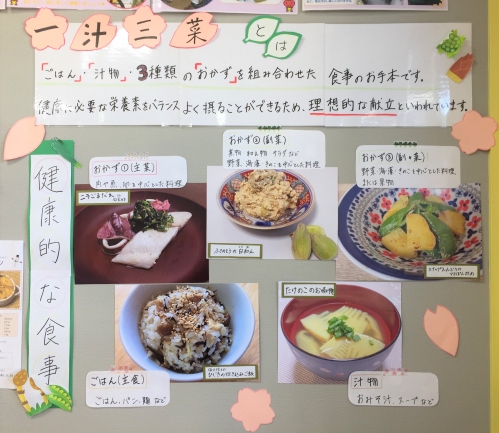 一汁三菜とは
「ごはん」・「汁物」・3種類の「おかず」を組み合わせた 食事のお手本です。
健康に必要な栄養素をバランスよく摂ることができるため、理想的な献立といわれています。
健康的な食事
おかず①(主菜)
肉や魚、卵を中心とした料理
おかず②(副菜)
煮物 和え物 サラダなど
野菜・海藻・きのこを中心とした料理
おかず③(副々菜)
野菜・海藻・きのこを中心とした料理
または果物
ふきのとうの白和え
たけのこのお吸物
ごはん(主食)
ごはん、パン、麺 など
ひじきの炊き込みご飯
汁物
おみそ汁、スープなど